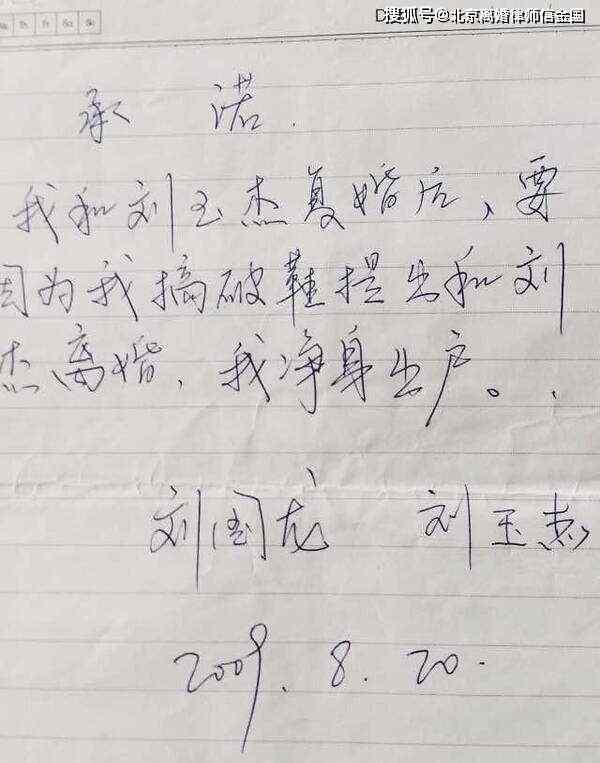 搜狐号@北京离婚律师信金国
承诺.
我和刘玉杰复婚后、要
因为我搞破鞋提出和刘
杰离婚、我净身出户。
刘国龙 刘玉杰
2009.8.20.